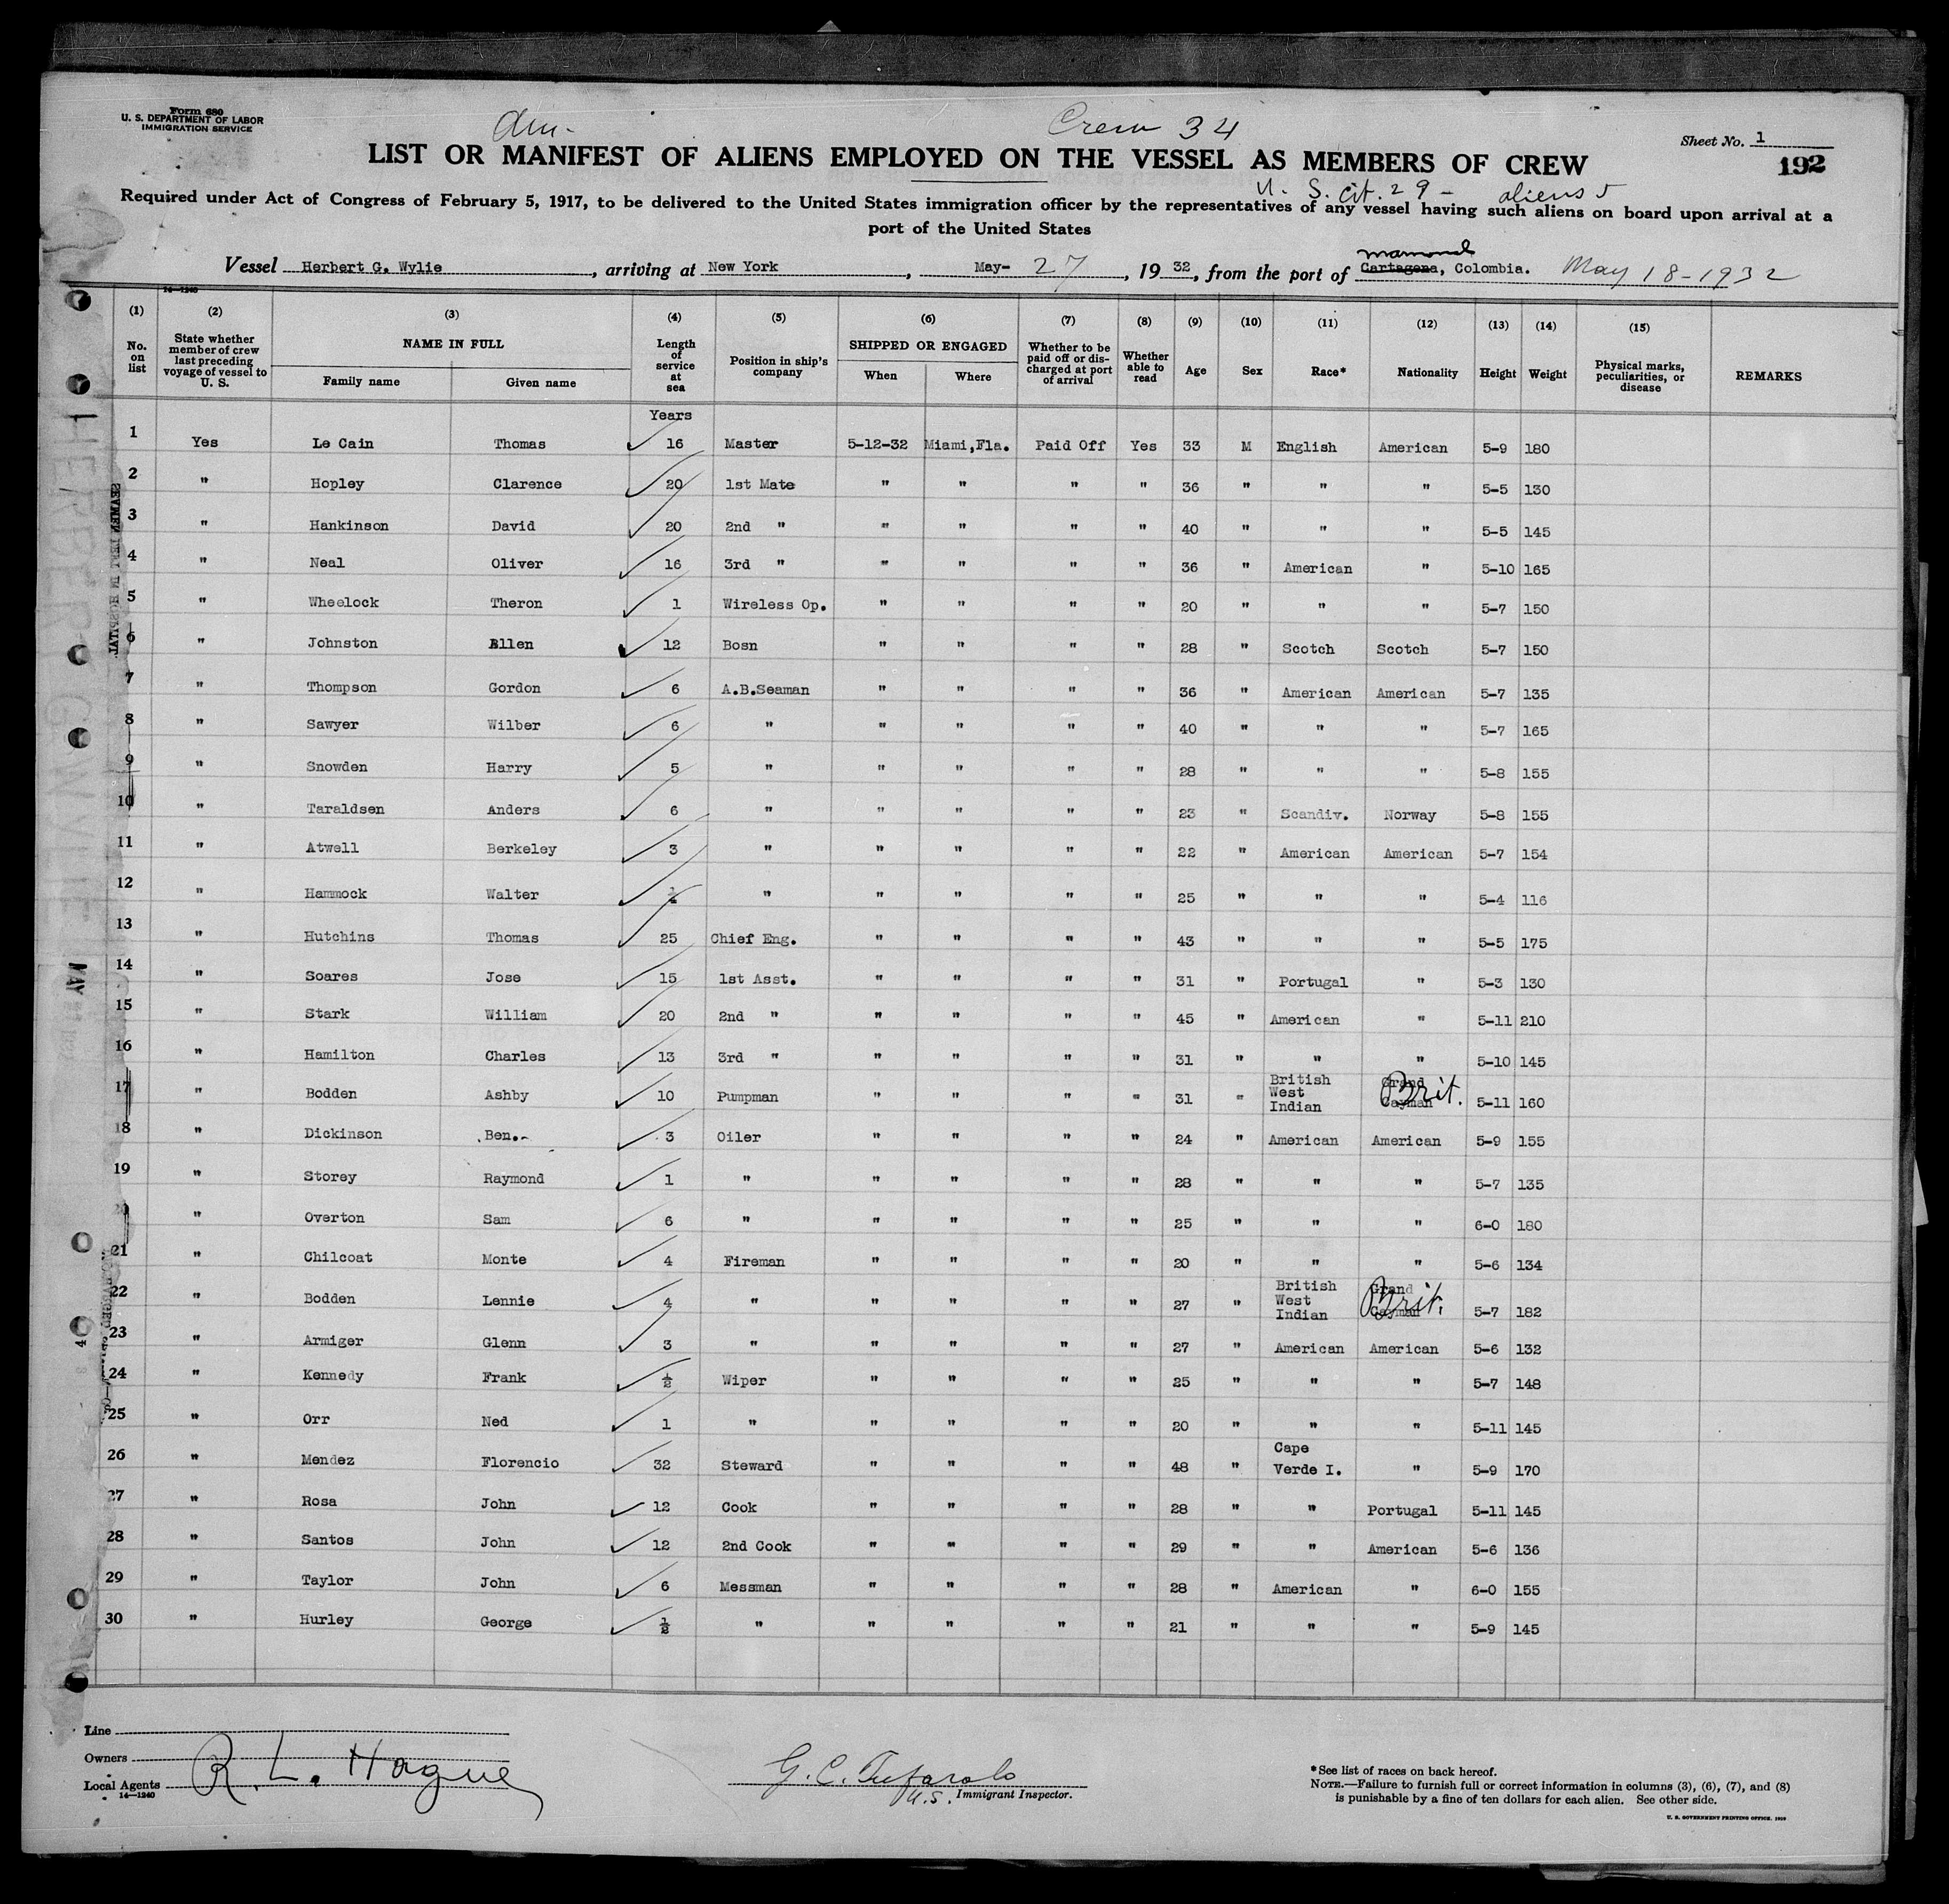 Form 680
U. S. DEPARTMENT OF LABOR
IMMIGRATION SERVICE
Crew 34
Sheet No. 1
LIST OR MANIFEST OF ALIENS EMPLOYED ON THE VESSEL AS MEMBERS OF CREW
192
U. S. cit. 29 - aliens 5
Required under Act of Congress of February 5, 1917, to be delivered to the United States immigration officer by the representatives of any vessel having such aliens on board upon arrival at a
port of the United States
mamonal
Vessel Herbert G. Wylie, arriving at New York, May- 27, 19 32, from the port of Cartagena, Colombia. May 18-1932
14-1240
(1) (2) (3) (4) (5) (6) (7) (8) (9) (10) (11) (12) (13) (14) (15)
No. on list State whether member of crew last preceding voyage of vessel to U. S. NAME IN FULL Family name Given name Length of service at sea Position in ship's company SHIPPED OR ENGAGED When Where Whether to be paid off or discharged at port of arrival Whether able to read Age Sex Race* Nationality Height Weight Physical marks, peculiarities, or disease REMARKS
Years
1 Yes Le Cain Thomas 16 Master 5-12-32 Miami,Fla. Paid Off Yes 33 M English American 5-9 180
2 " Hopley Clarence 20 1st Mate " " " " 36 " " " 5-5 130
3 " Hankinson David 20 2nd " " " " " 40 " " " 5-5 145
4 " Neal Oliver 16 3rd " " " " " 36 " American " 5-10 165
5 " Wheelock Theron 1 Wireless Op. " " " " 20 " " " 5-7 150
6 " Johnston Allen 12 Bosn " " " " 28 " Scotch Scotch 5-7 150
7 " Thompson Gordon 6 A.B.Seaman " " " " 36 " American American 5-7 135
8 " Sawyer Wilber 6 " " " " " 40 " " " 5-7 165
9 " Snowden Harry 5 " " " " " 28 " " " 5-8 155
10 " Taraldsen Anders 6 " " " " " 23 " Scandiv. Norway 5-8 155
11 " Atwell Berkeley 3 " " " " " 22 " American American 5-7 154
12 " Hammock Walter ½ " " " " " 25 " " " 5-4 116
13 " Hutchins Thomas 25 Chief Eng. " " " " 43 " " " 5-5 175
14 " Soares Jose 15 1st Asst. " " " " 31 " Portugal " 5-3 130
15 " Stark William 20 2nd " " " " " 45 " American " 5-11 210
16 " Hamilton Charles 13 3rd " " " " " 31 " " " 5-10 145
17 " Bodden Ashby 10 Pumpman " " " " 31 " British West Indian Grand Cayman Brit. 5-11 160
18 " Dickinson Ben. 3 Oiler " " " " 24 " American American 5-9 155
19 " Storey Raymond 1 " " " " " 28 " " " 5-7 135
20 " Overton Sam 6 " " " " " 25 " " " 6-0 180
21 " Chilcoat Monte 4 Fireman " " " " 20 " " " 5-6 134
22 " Bodden Lennie 4 " " " " " 27 " British West Indian Grand Cayman Brit. 5-7 182
23 " Armiger Glenn 3 " " " " " 27 " American American 5-6 132
24 " Kennedy Frank ½ Wiper " " " " 25 " " " 5-7 148
25 " Orr Ned 1 " " " " " 20 " " " 5-11 145
26 " Mendez Florencio 32 Steward " " " " 48 " Cape Verde I. " 5-9 170
27 " Rosa John 12 Cook " " " " 28 " " Portugal 5-11 145
28 " Santos John 12 2nd Cook " " " " 29 " " American 5-6 136
29 " Taylor John 6 Messman " " " " 28 " American " 6-0 155
30 " Hurley George ½ " " " " " 21 " " " 5-9 145
Line
Owners
Local Agents R. L. Hague
14-1240
U.S. Immigrant Inspector.
*See list of races on back hereof.
NOTE.—Failure to furnish full or correct information in columns (3), (6), (7), and (8)
is punishable by a fine of ten dollars for each alien. See other side.
U. S. GOVERNMENT PRINTING OFFICE.
HERBERT G. WYLIE
SEAMEN LEFT IN HOSPITAL
MAY